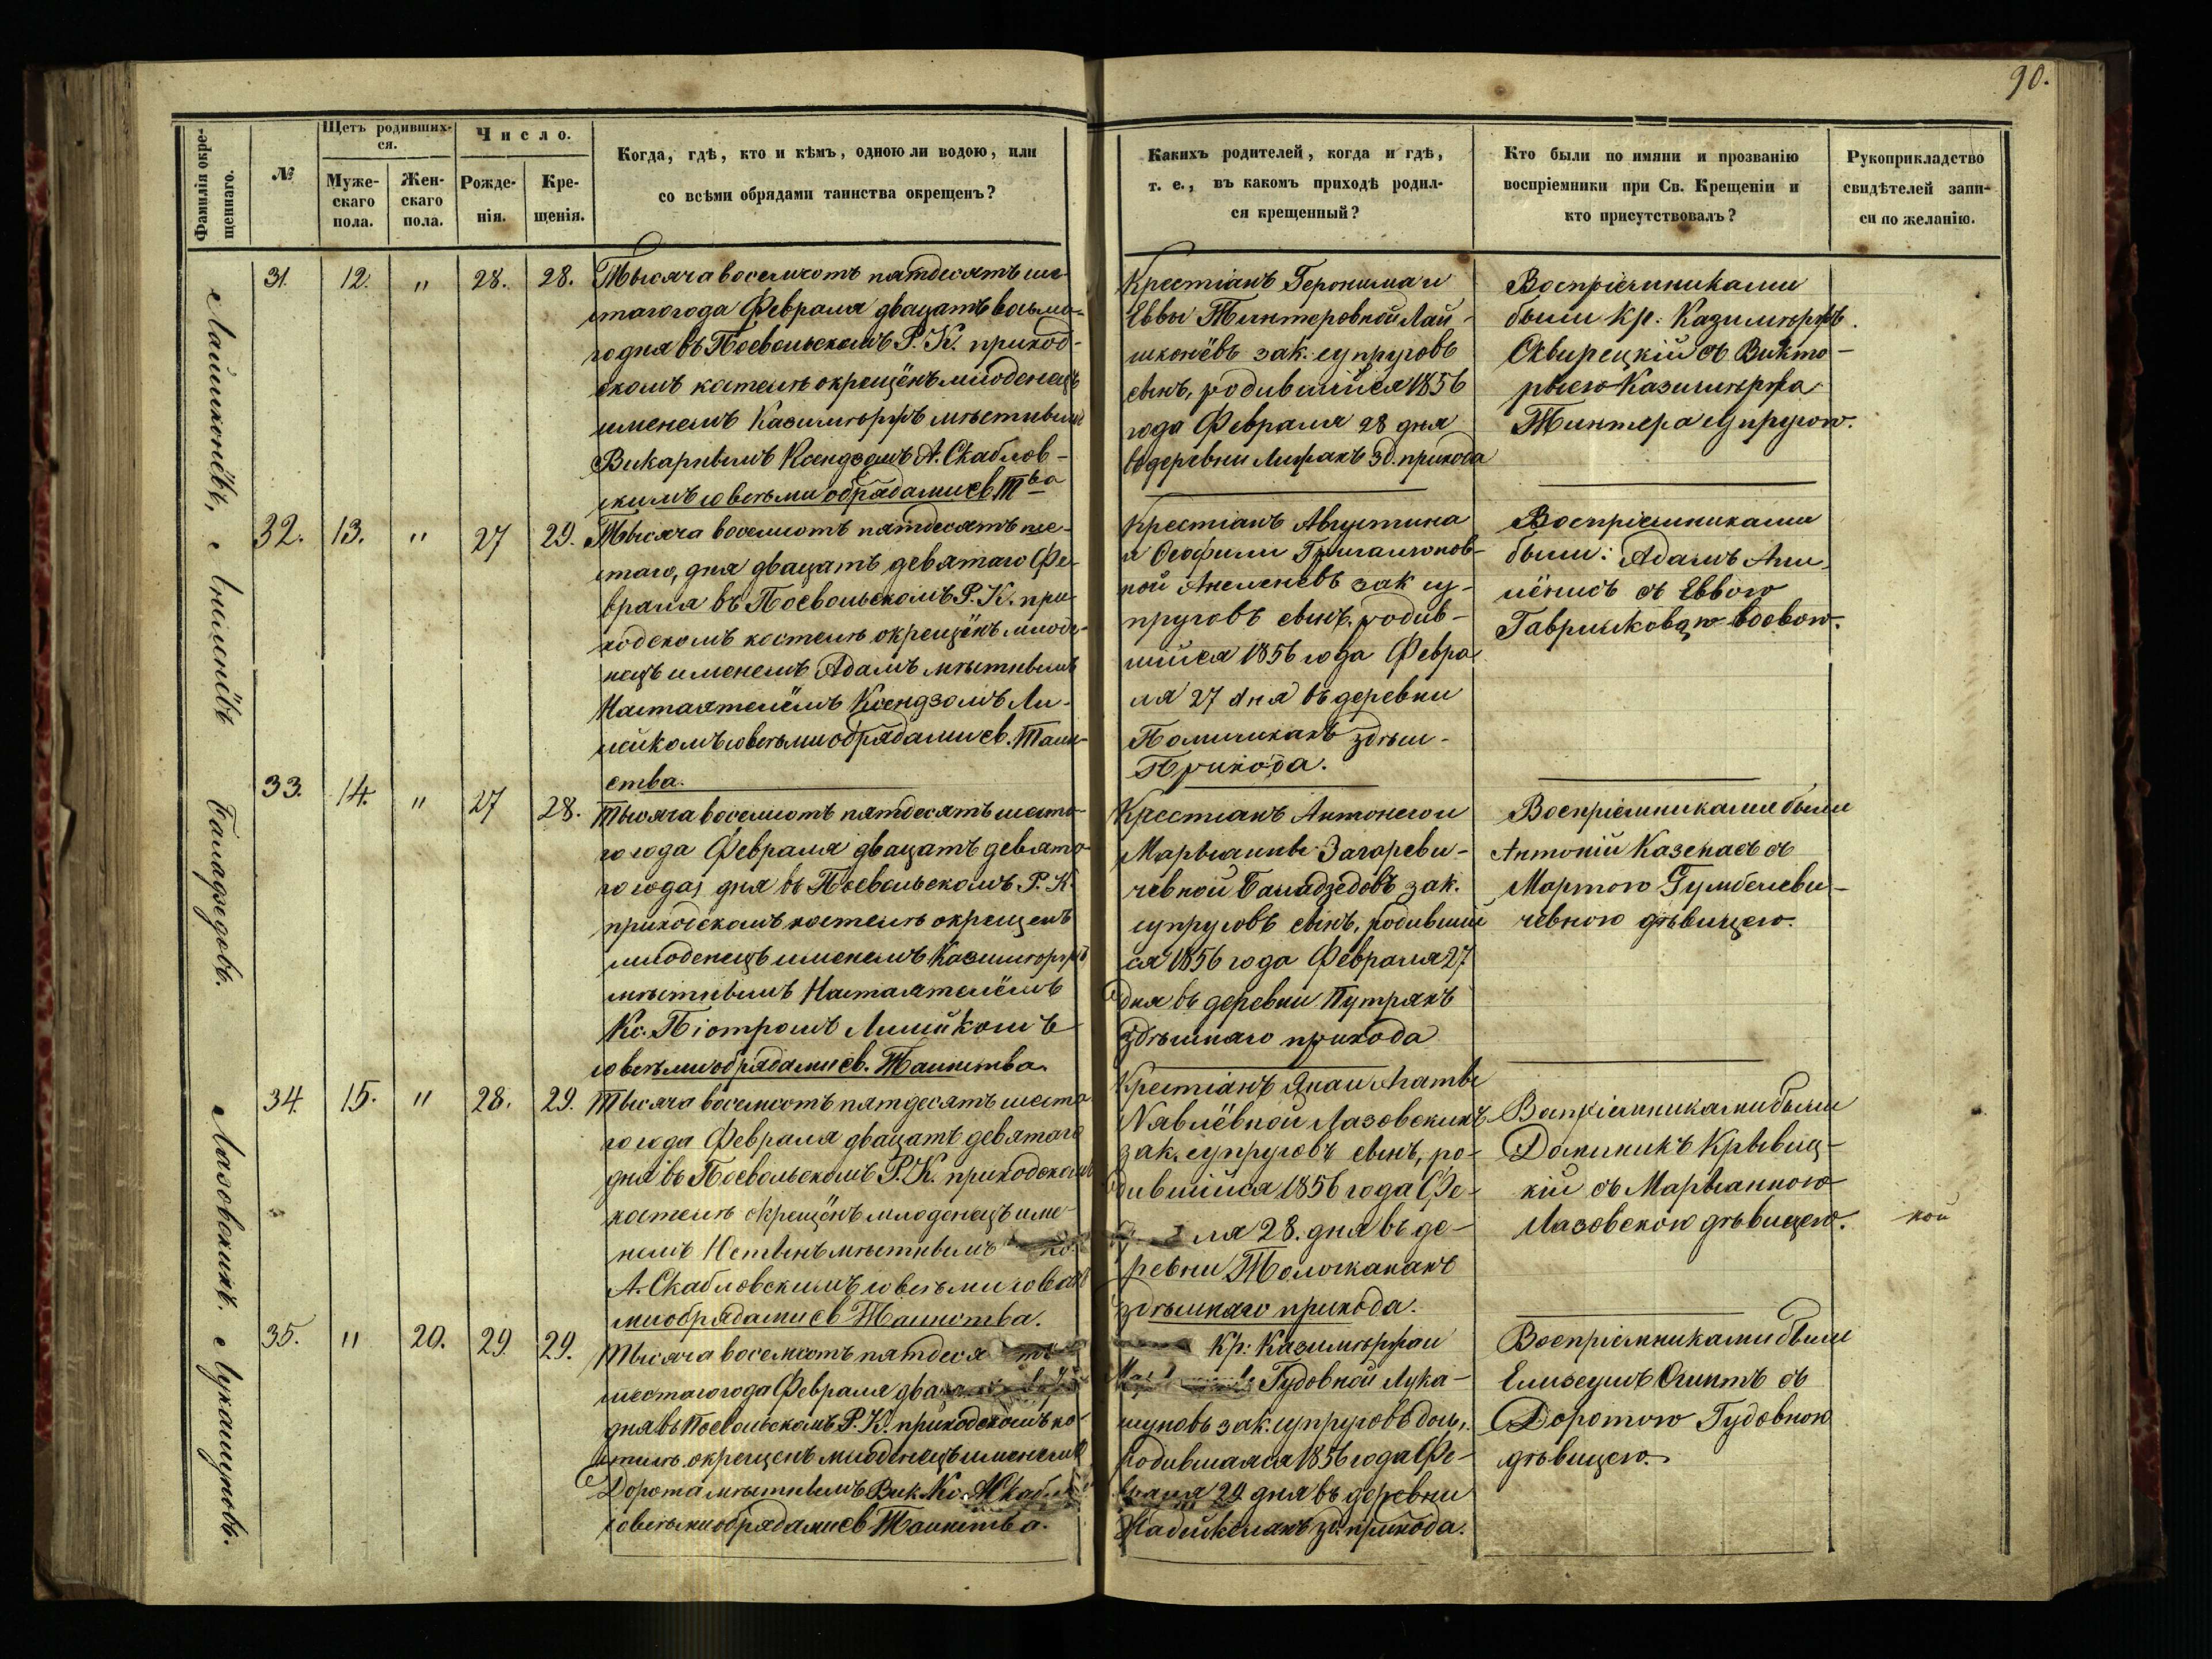 90.
Фамилія окре-
щеннаго.
№
Щетъ родивших-
ся.
Муже-
скаго
пола.
Жен-
скаго
пола.
Число.
Рожде-
нія.
Кре-
щенія.
Когда, гдѣ, кто и кѣмъ, одною ли водою, или
со всѣми обрядами таинства окрещенъ?
Какихъ родителей, когда и гдѣ,
т. е., въ какомъ приходѣ родил-
ся крещенный?
Кто были по имяни и прозванію
воспріемники при Св. Крещеніи и
кто присутствовалъ?
Рукоприкладство
свидѣтелей запи-
си по желанію.
Лайшконёвъ,
31. 12. " 28. 28.
Тысяча восемсотъ пятдесятъ ше-
стаго года Февраля двацать восьма-
го дня въ Поевольскомъ Р. К. приход-
скомъ костелѣ окрещёнъ младенецъ
именемъ Казимѣржъ мѣстнымъ
Викарнымъ Ксендзомъ А. Скаблов-
скимъ со всѣми обрядами св. Тва
Крестіанъ Геронима и
Еввы Тинтеровной Лай-
шконёвъ зак. супруговъ
сынъ, родившійся 1856
года Февраля 28 дня
въ деревни зд. прихода
Воспріемниками
были Кр: Казимѣржъ
Сквирецкій съ Викто-
рыею Казимѣржа
Тинтера супругою.
32. 13. " 27 29.
Тысяча восемсотъ пятдесятъ ше-
стаго, дня двацать девятаго Фе-
враля въ Поевольскомъ Р. К. при-
ходскомъ костелѣ окрещёнъ младе-
нецъ именемъ Адамъ мѣстнымъ
Настаятелёмъ Ксендзомъ Ли-
со всѣми обрядами св. Таин-
ства.
Крестіанъ Августина
и Ѳеофили
ной зак су-
пруговъ сынъ, родив-
шійся 1856 года Февра
ля 27 дня въ деревни
здѣш-
Прихода.
Воспріемниками
были: Адамъ
съ Еввою
вдовою.
Баладзедовъ.
33. 14. " 27 28.
Тысяча восемсотъ пятдесятъ шеста-
го года Февраля двацать девята-
го года дня въ Поевольскомъ Р. К.
приходскомъ костелѣ окрещенъ
младенецъ именемъ Казимѣржъ
мѣстнымъ Настаятелёмъ
Кс. Піотромъ
со всѣми обрядами св. Таинства.
Крестіанъ Антонего и
Марыанны Загареви-
чевной Баладзедовъ зак.
супруговъ сынъ, родившій
ся 1856 года Февраля 27
дня въ деревни Путряхъ
здѣшнаго прихода
Воспріемниками были
Антоній Казенасъ съ
Мартою Гумбелеви-
чевною дѣвицею.
Лазовскихъ.
34. 15. " 28. 29.
Тысяча восемсотъ пятдесятъ шеста
го года Февраля двацать девятаго
дня въ Поевольскомъ Р. К. приходскомъ
костелѣ окрещёнъ младенецъ име-
немъ мѣстнымъ
А. Скабловскимъ со всѣми со всѣ
ми обрядами св Таинства.
Крестіанъ Яна и Агаты
Лазовскихъ
зак. супруговъ сынъ, ро-
дившійся 1856 года Фе-
ля 28. дня въ де-
ревни
здѣшнаго прихода.
Воспріемниками были
Доминикъ Крывиц-
кій съ Марыанною
Лазовскою дѣвицею.
кой
Лукашуновъ.
35. " 20. 29. 29.
Тысяча восемсотъ пятдеся тъ
шестаго года Февраля
дня въ Поевольскомъ Р. К. приходскомъ ко-
стелѣ окрещенъ младенецъ именемъ
Дорота мѣстнымъ Вик. Кс. А Скабл
со всѣми обрядами св Таинства.
Кр: Казимѣржа и
Гудовной Лука-
шуновъ зак. супруговъ дочь,
родившаяся 1856 года Фе-
враля 29 дня въ деревни
зд. прихода.
Воспріемниками были
съ
Доротою Гудовною
дѣвицею.